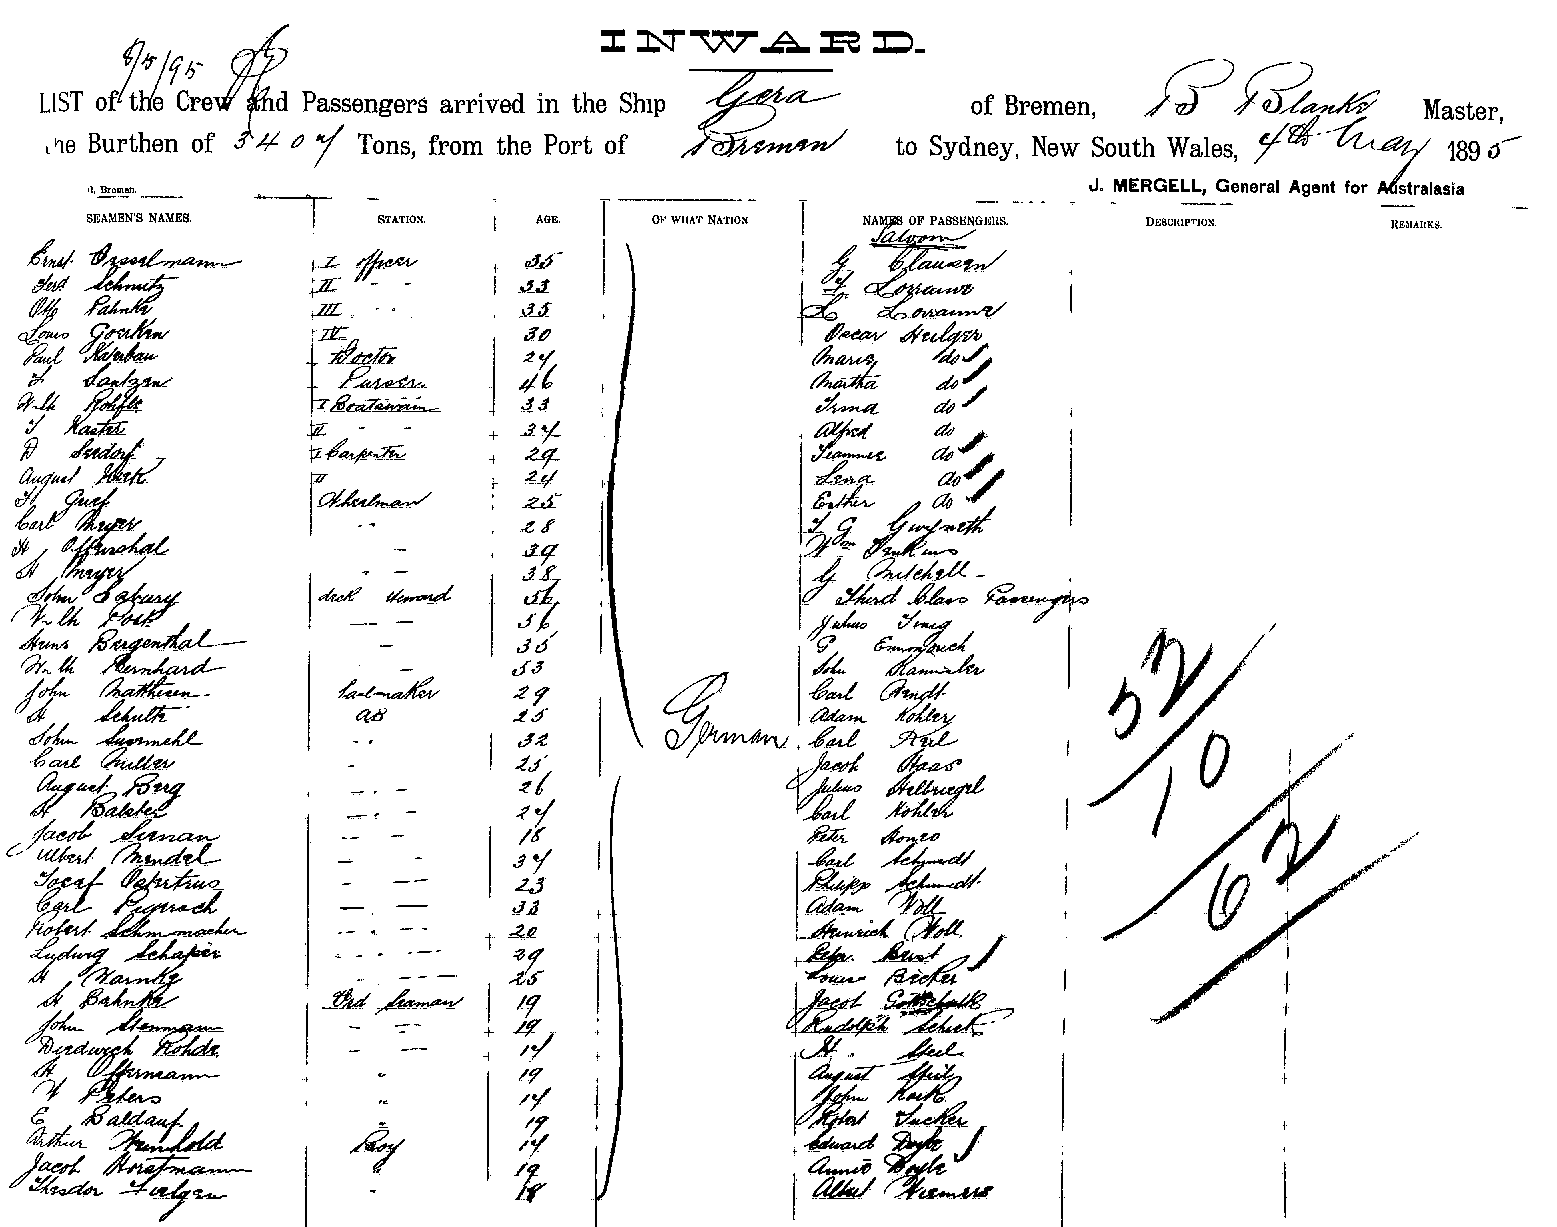 INWARD.
8/5/95
LIST of the Crew and Passengers arrived in the Ship Gera of Bremen, B Blanke Master,
the Burthen of 3407 Tons, from the Port of Bremen to Sydney, New South Wales, 4th May 1895
Bremen. J. MERGELL, General Agent for Australasia
SEAMEN'S NAMES. STATION. AGE. OF WHAT NATION NAMES OF PASSENGERS. DESCRIPTION. REMARKS.
Saloon
Ernst I officer 35 G Clausen
Ferd Schmitz II - - 33 F Lorraine
Otto Pahnke III - - 35 L Lorraine
Louis Goerken IV 30 Oscar Heilger
Paul Doctor 24 Marie do
Santzen Purser 46 Martha do
Wilh Rohlfs I Boatswain 33 Irma do
Kaster II - - 34 Alfred do
D I Carpenter 29 do
August II 24 Lena do
25 Esther do
Carl Meyer - 28 Gwyneth
H - 39 Wm Jenkins
H Meyer - - 38 G Mitchell
John deck steward 56 Third Class Passengers
Wilh Post - - 56 Julius
Heinr Bergenthal - 35
Wilh Bernhard - 53 John
John Matthiesen Sailmaker 29 Carl Arndt
H Schultz AB 25 Adam Kohler
John - - 32 German Carl Keil
Carl Muller - 25 Jacob Haas
August Berg - - - 26 Julius
H Balster - - - 24 Carl Kohler
Jacob - - 18 Peter
Albert Mendel - - 34 Carl Schmidt
- - 23 Philipp Schmidt
Carl - - 33 Adam Woll
Robert Schumacher - - - 20 Heinrich Woll
Ludwig Schaper - - - - 29
H Warnke - - - - 25 Louise Becker
H Behnke Ord Seaman 19 Jacob Gottschalk
John Stenmann - - 19 Rudolph
Diedwich Rohde - - 17 H
H Offermann " 19 August
W Peters " 17 John
E Baldauf " 19 Robert Tucker
Arthur Boy 17 Edward Doyle
Jacob Horstmann " 19 Annie Doyle
Theodor - 18 Albert Wiemers
52
10
62